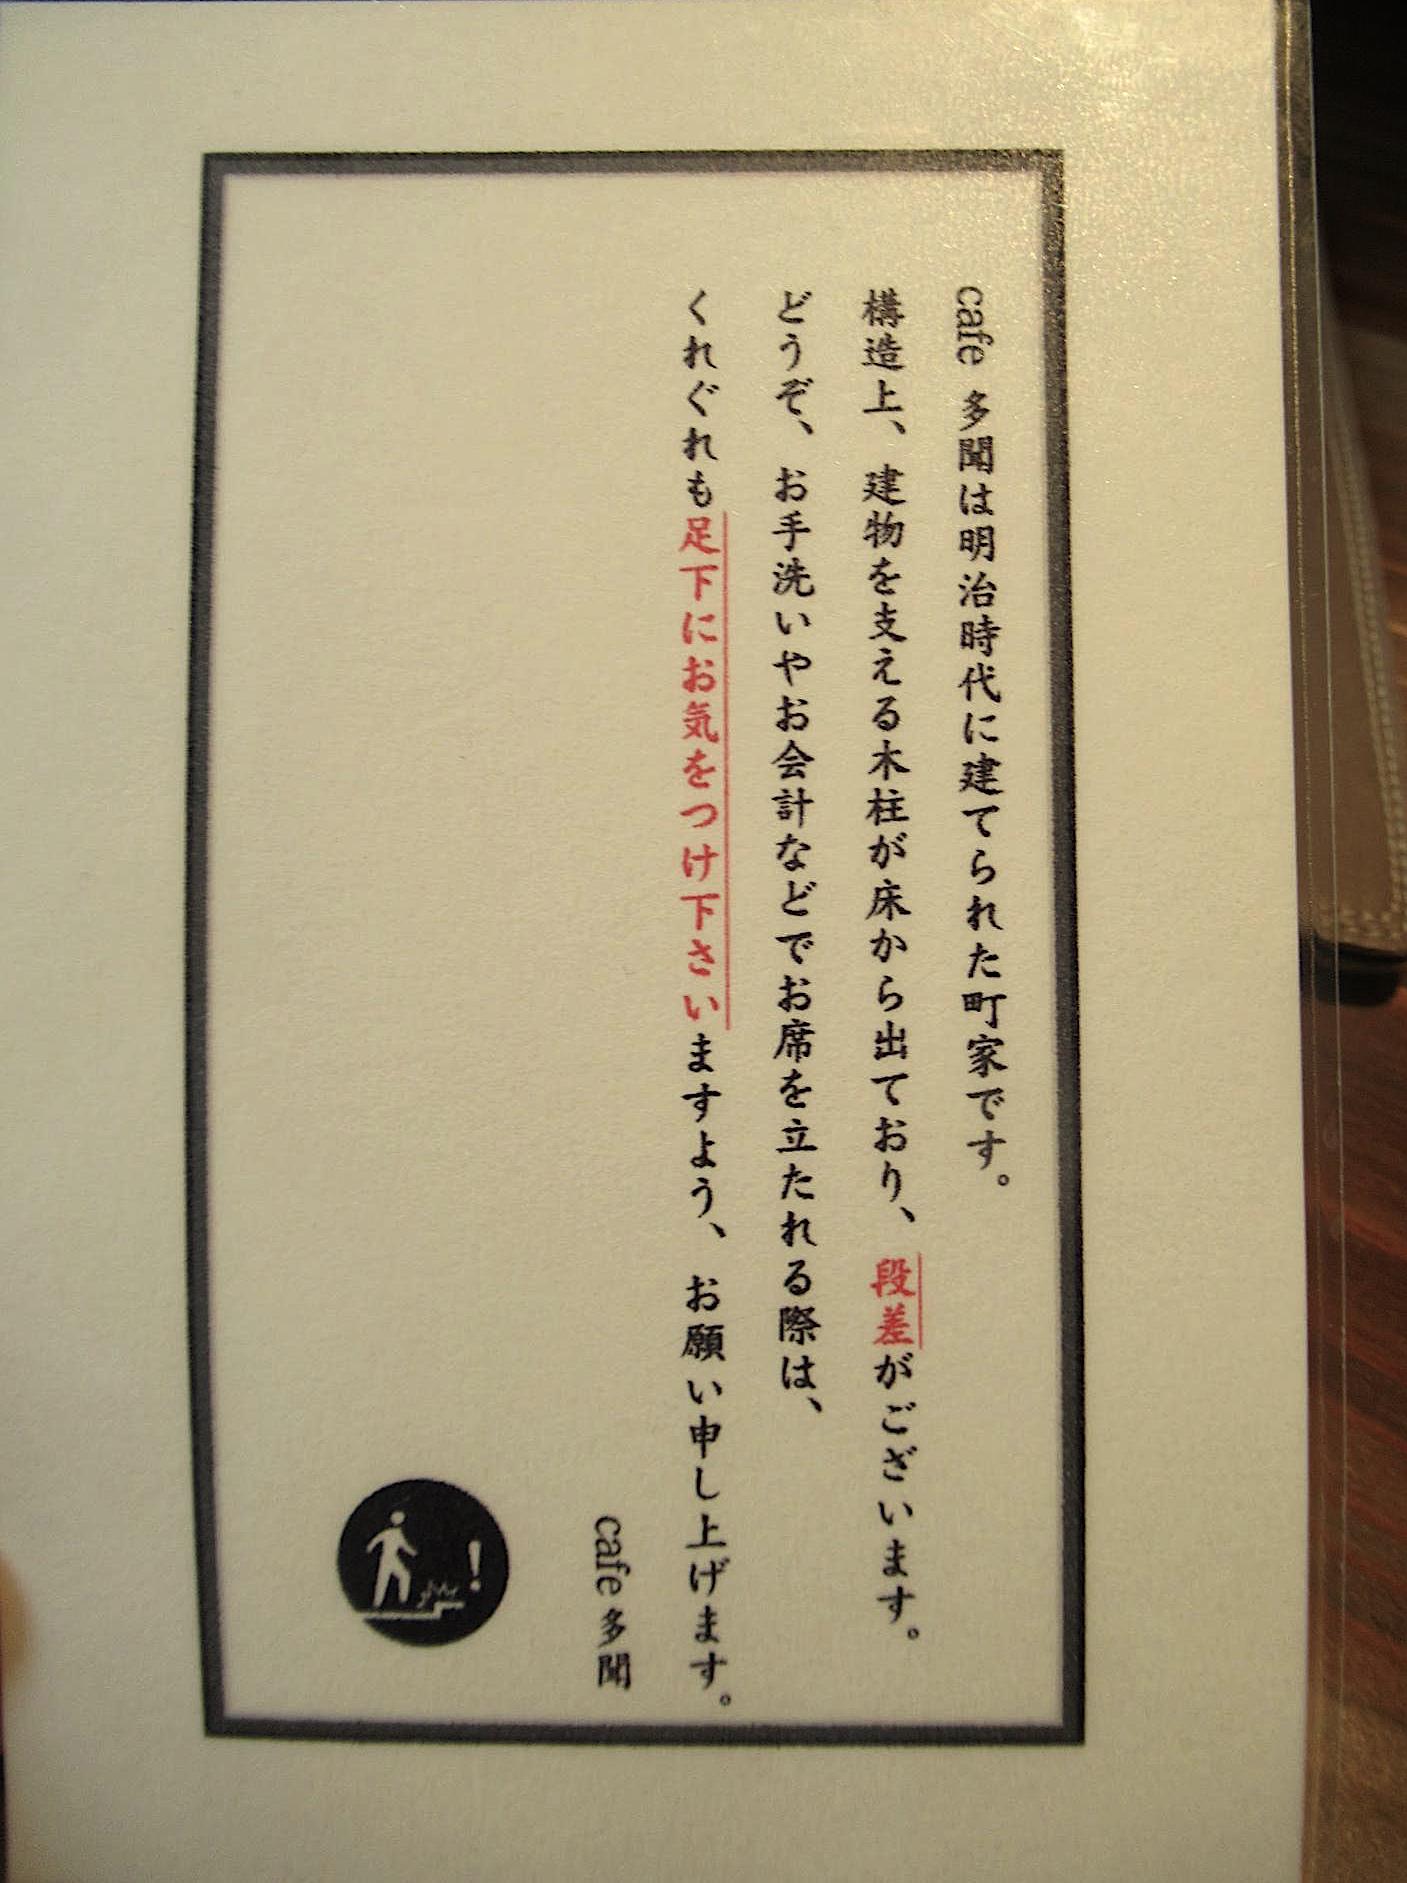 cafe 多聞は明治時代に建てられた町家です。
構造上、建物を支える木柱が床から出ており、段差がございます。
どうぞ、お手洗いやお会計などでお席を立たれる際は、
くれぐれも足下にお気をつけ下さいますよう、お願い申し上げます。
cafe 多聞
!